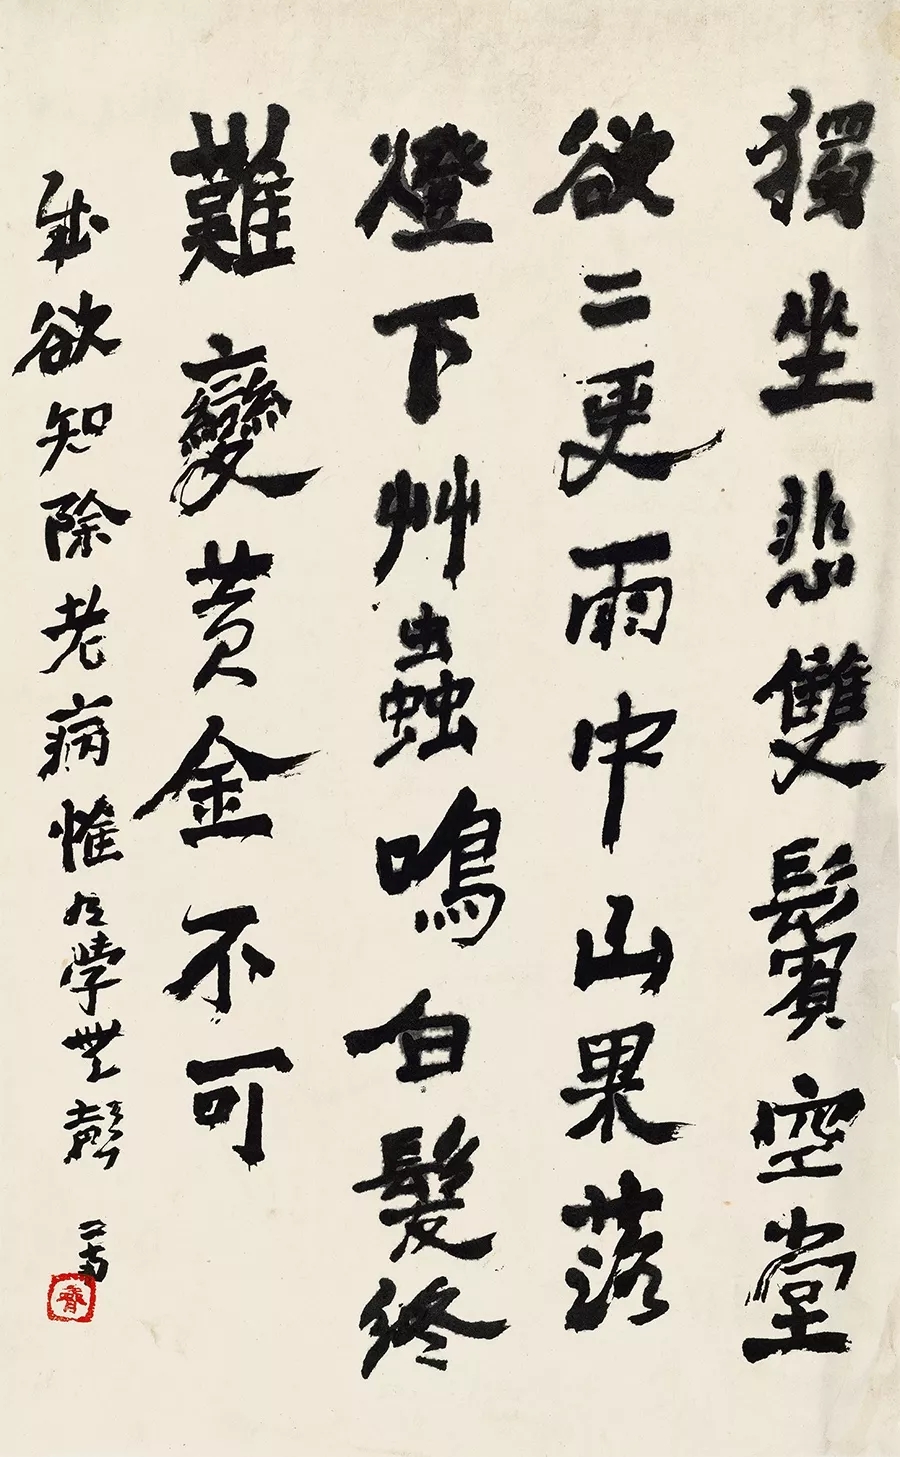 獨坐悲雙鬢空堂
欲二更雨中山果落
燈下艸蟲鳴白髮終
難變黃金不可
成欲知除老病惟有學無